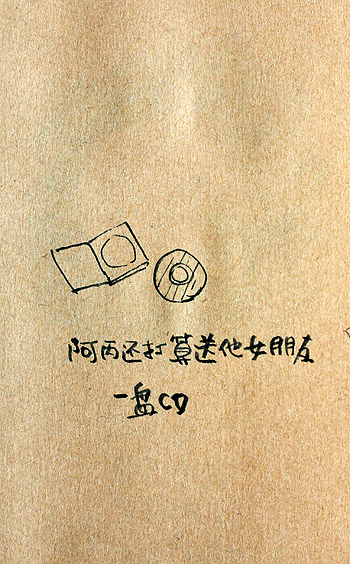 阿丙还打算送他女朋友
一盘CD